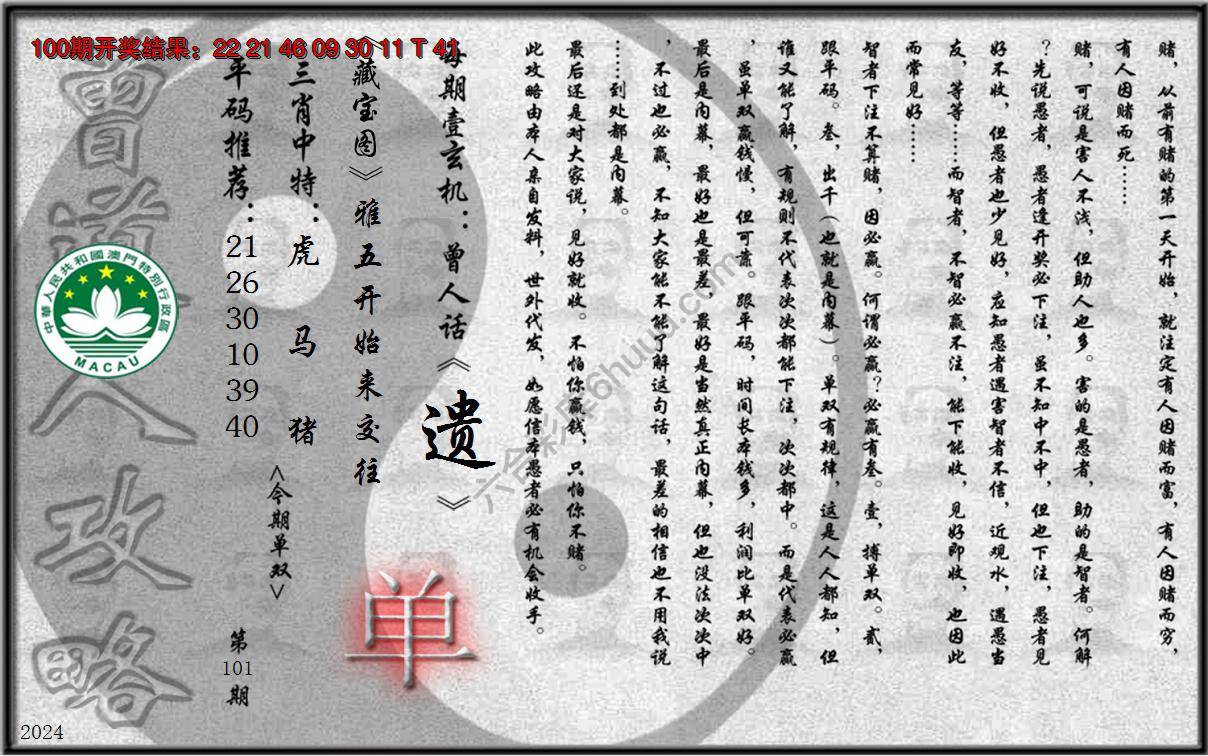 100期开奖结果：22 21 46 09 30 11 T 41
赌，从前有赌的第一天开始，就注定有人因赌而富，有人因赌而穷，
有人因赌而死……
赌，可说是害人不浅，但助人也多。害的是愚者，助的是智者。何解
？先说愚者，愚者逢开奖必下注，虽不知中不中，但也下注，愚者见
好不收，但愚者也少见好，应知愚者遇害智者不信，近观水，遇愚当
友，等等……而智者，不智必赢不注，能下能收，见好即收，也因此
而常见好……
智者下注不算赌，因必赢。何谓必赢？必赢有叁。壹，搏单双。贰，
跟平码。叁，出千（也就是内幕）。单双有规律，这是人人都知，但
谁又能了解，有规则不代表次次都能下注，次次都中。而是代表必赢
，虽单双赢钱慢，但可靠。跟平码，时间长本钱多，利润比单双好。
最后是内幕，最好也是最差，最好是当然真正内幕，但也没法次次中
，不过也必赢，不知大家能不能了解这句话，最差的相信也不用我说
……到处都是内幕。
最后还是对大家说，见好就收。不怕你赢钱，只怕你不赌。
此攻略由本人亲自发料，世外代发，如愿信本愚者必有机会收手。
每期壹玄机：曾人话《遗》
《藏宝图》雅五开始来交往
三肖中特：虎 马 猪
平码推荐：21 26 30 10 39 40
<今期单双>
单
第101期
曾道人攻略
中華人民共和國澳門特別行政區
MACAU
六合彩库6huuu.com
2024